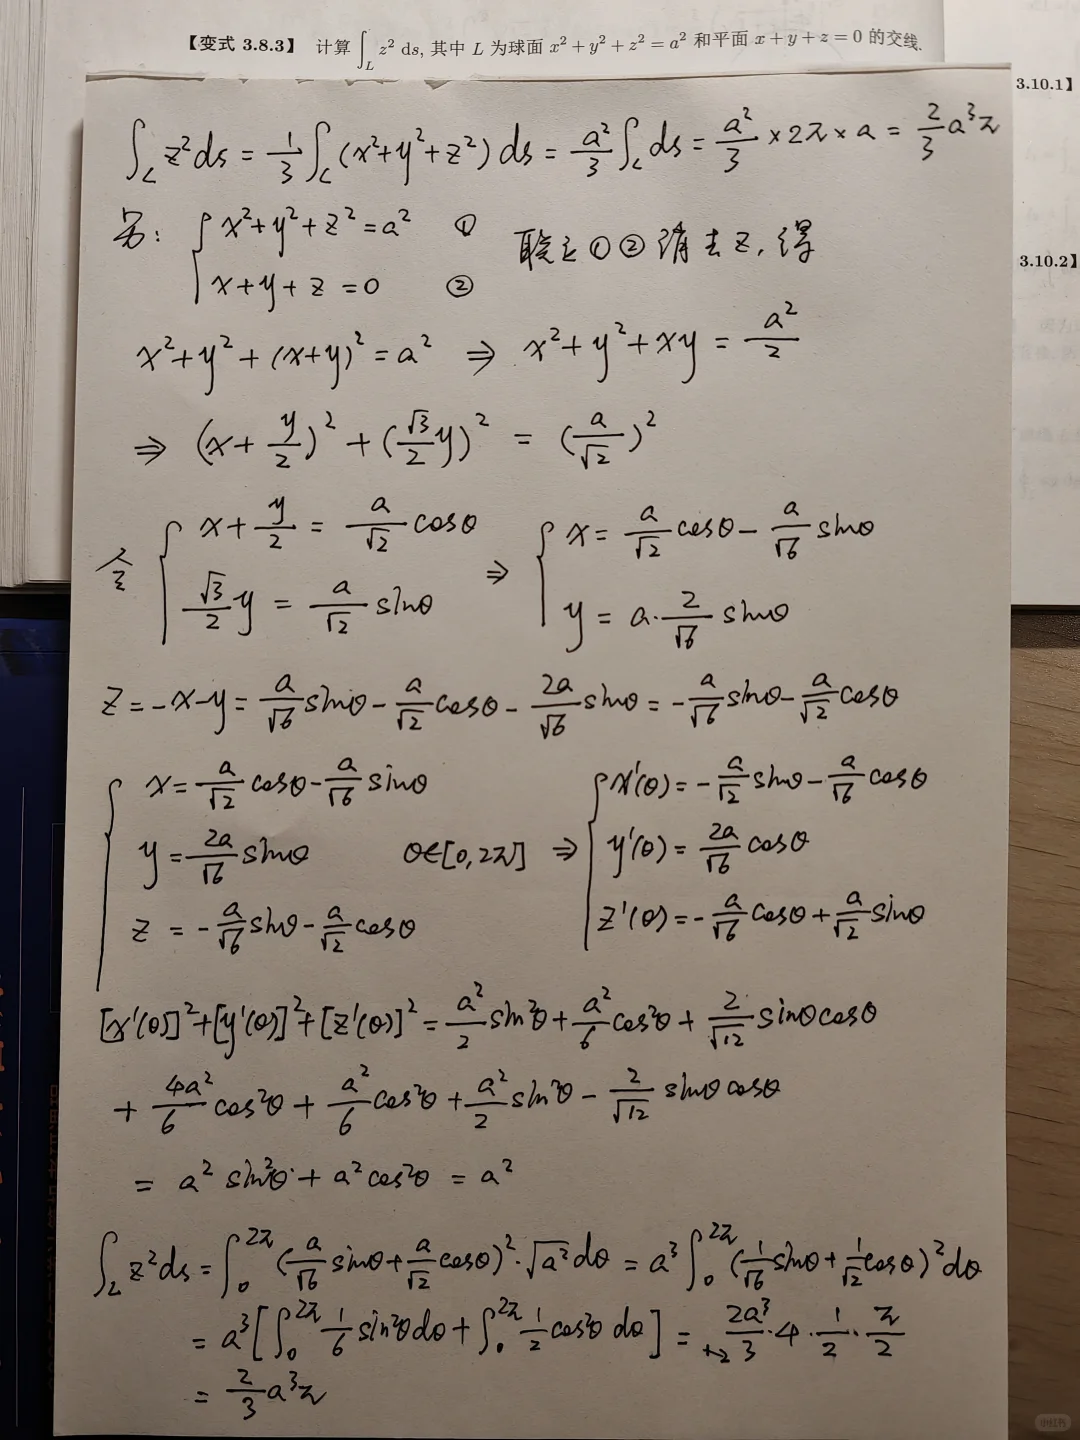 【变式 3.8.3】 计算 ∫_L z² ds, 其中 L 为球面 x² + y² + z² = a² 和平面 x + y + z = 0 的交线.
3.10.1】
∫_L z²ds = 1/3 ∫_L (x²+y²+z²) ds = a²/3 ∫_L ds = a²/3 × 2π × a = 2/3 a³π
另: { x²+y²+z² = a² ① 联立①②消去 z, 得
x+y+z = 0 ②
3.10.2】
x²+y²+(x+y)² = a² ⇒ x²+y²+xy = a²/2
⇒ (x+y/2)² + (√3/2 y)² = (a/√2)²
令 { x+y/2 = a/√2 cosθ ⇒ { x = a/√2 cosθ - a/√6 sinθ
√3/2 y = a/√2 sinθ y = a·2/√6 sinθ
z = -x-y = a/√6 sinθ - a/√2 cosθ - 2a/√6 sinθ = -a/√6 sinθ - a/√2 cosθ
{ x = a/√2 cosθ - a/√6 sinθ { x'(θ) = -a/√2 sinθ - a/√6 cosθ
y = 2a/√6 sinθ θ∈[0,2π] ⇒ y'(θ) = 2a/√6 cosθ
z = -a/√6 sinθ - a/√2 cosθ z'(θ) = -a/√6 cosθ + a/√2 sinθ
[x'(θ)]²+[y'(θ)]²+[z'(θ)]² = a²/2 sin²θ + a²/6 cos²θ + 2/√12 sinθcosθ
+ 4a²/6 cos²θ + a²/6 cos²θ + a²/2 sin²θ - 2/√12 sinθcosθ
= a² sin²θ + a² cos²θ = a²
∫_L z²ds = ∫₀^2π (a/√6 sinθ + a/√2 cosθ)²·√a² dθ = a³ ∫₀^2π (1/√6 sinθ + 1/√2 cosθ)² dθ
= a³ [∫₀^2π 1/6 sin²θ dθ + ∫₀^2π 1/2 cos²θ dθ] = 2a³/3 · 4 · 1/2 · π/2
= 2/3 a³π
小红书